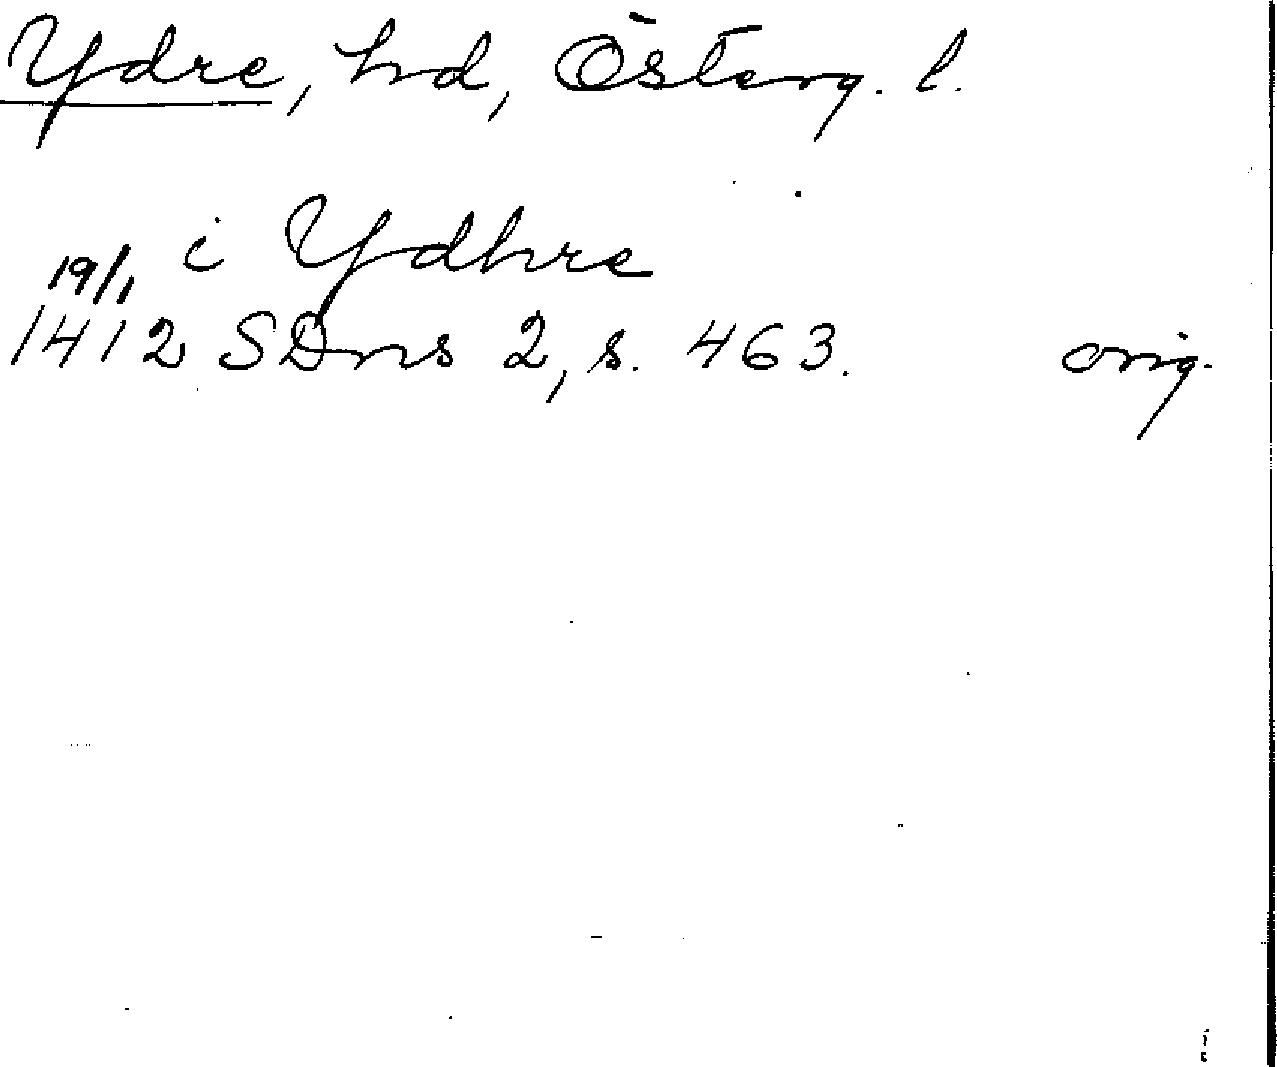 Ydre, hd, Österg. l.
i Ydhre
19/1
1412 SDns 2, s. 463. orig.